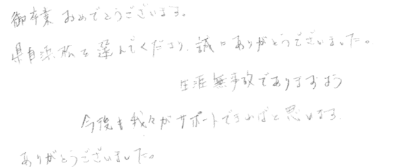 御卒業 おめでとうございます。
選んでくださり、誠にありがとうございました。
生涯無事故でありますよう
今後も我々がサポートできればと思います
ありがとうございました。